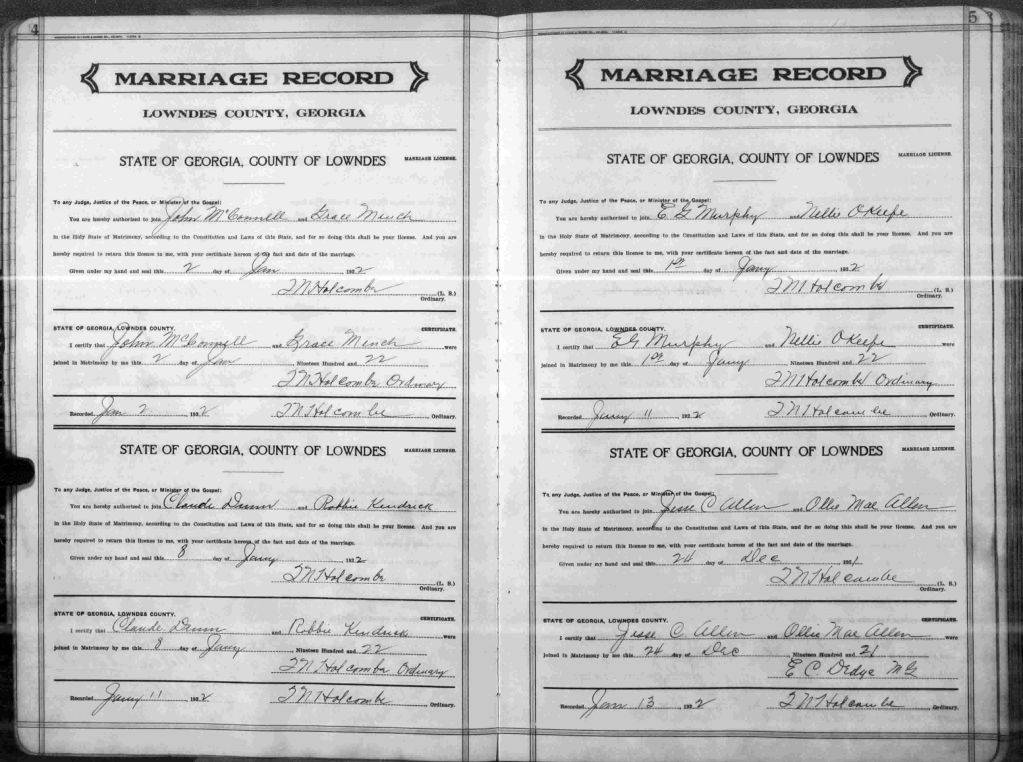 4
MARRIAGE RECORD
LOWNDES COUNTY, GEORGIA
STATE OF GEORGIA, COUNTY OF LOWNDES MARRIAGE LICENSE.
To any Judge, Justice of the Peace, or Minister of the Gospel:
You are hereby authorized to join John McConnell and Grace Minch
in the Holy State of Matrimony, according to the Constitution and Laws of this State, and for so doing this shall be your license. And you are
hereby required to return this license to me, with your certificate hereon of the fact and date of the marriage.
Given under my hand and seal this 2 day of Jan 1922
T N Holcombe (L. S.)
Ordinary.
STATE OF GEORGIA, LOWNDES COUNTY. CERTIFICATE.
I certify that John McConnell and Grace Minch were
joined in Matrimony by me this 2 day of Jan Nineteen Hundred and 22
T N Holcombe Ordinary
Recorded Jan 2 1922 T N Holcombe Ordinary.
STATE OF GEORGIA, COUNTY OF LOWNDES MARRIAGE LICENSE.
To any Judge, Justice of the Peace, or Minister of the Gospel:
You are hereby authorized to join Claude Dunn and Robbie Kendrick
in the Holy State of Matrimony, according to the Constitution and Laws of this State, and for so doing this shall be your license. And you are
hereby required to return this license to me, with your certificate hereon of the fact and date of the marriage.
Given under my hand and seal this 8 day of Jany 1922
T N Holcombe (L. S.)
Ordinary.
STATE OF GEORGIA, LOWNDES COUNTY. CERTIFICATE.
I certify that Claude Dunn and Robbie Kendrick were
joined in Matrimony by me this 8 day of Jany Nineteen Hundred and 22
T N Holcombe Ordinary
Recorded Jany 11 1922 T N Holcombe Ordinary.
5
MARRIAGE RECORD
LOWNDES COUNTY, GEORGIA
STATE OF GEORGIA, COUNTY OF LOWNDES MARRIAGE LICENSE.
To any Judge, Justice of the Peace, or Minister of the Gospel:
You are hereby authorized to join E G Murphy and Nellie OKeefe
in the Holy State of Matrimony, according to the Constitution and Laws of this State, and for so doing this shall be your license. And you are
hereby required to return this license to me, with your certificate hereon of the fact and date of the marriage.
Given under my hand and seal this day of Jany 1922
T N Holcombe (L. S.)
Ordinary.
STATE OF GEORGIA, LOWNDES COUNTY. CERTIFICATE.
I certify that EG Murphy and Nellie OKeefe were
joined in Matrimony by me this day of Jany Nineteen Hundred and 22
T N Holcombe Ordinary
Recorded Jany 11 1922 T N Holcombe Ordinary.
STATE OF GEORGIA, COUNTY OF LOWNDES MARRIAGE LICENSE.
To any Judge, Justice of the Peace, or Minister of the Gospel:
You are hereby authorized to join Jesse C Allen and Ollie Mae Allen
in the Holy State of Matrimony, according to the Constitution and Laws of this State, and for so doing this shall be your license. And you are
hereby required to return this license to me, with your certificate hereon of the fact and date of the marriage.
Given under my hand and seal this 24 day of Dec 1921
T N Holcombe (L. S.)
Ordinary.
STATE OF GEORGIA, LOWNDES COUNTY. CERTIFICATE.
I certify that Jesse C. Allen and Ollie Mae Allen were
joined in Matrimony by me this 24 day of Dec Nineteen Hundred and 21
E C Dedge MG
Recorded Jan 13 1922 T N Holcombe Ordinary.